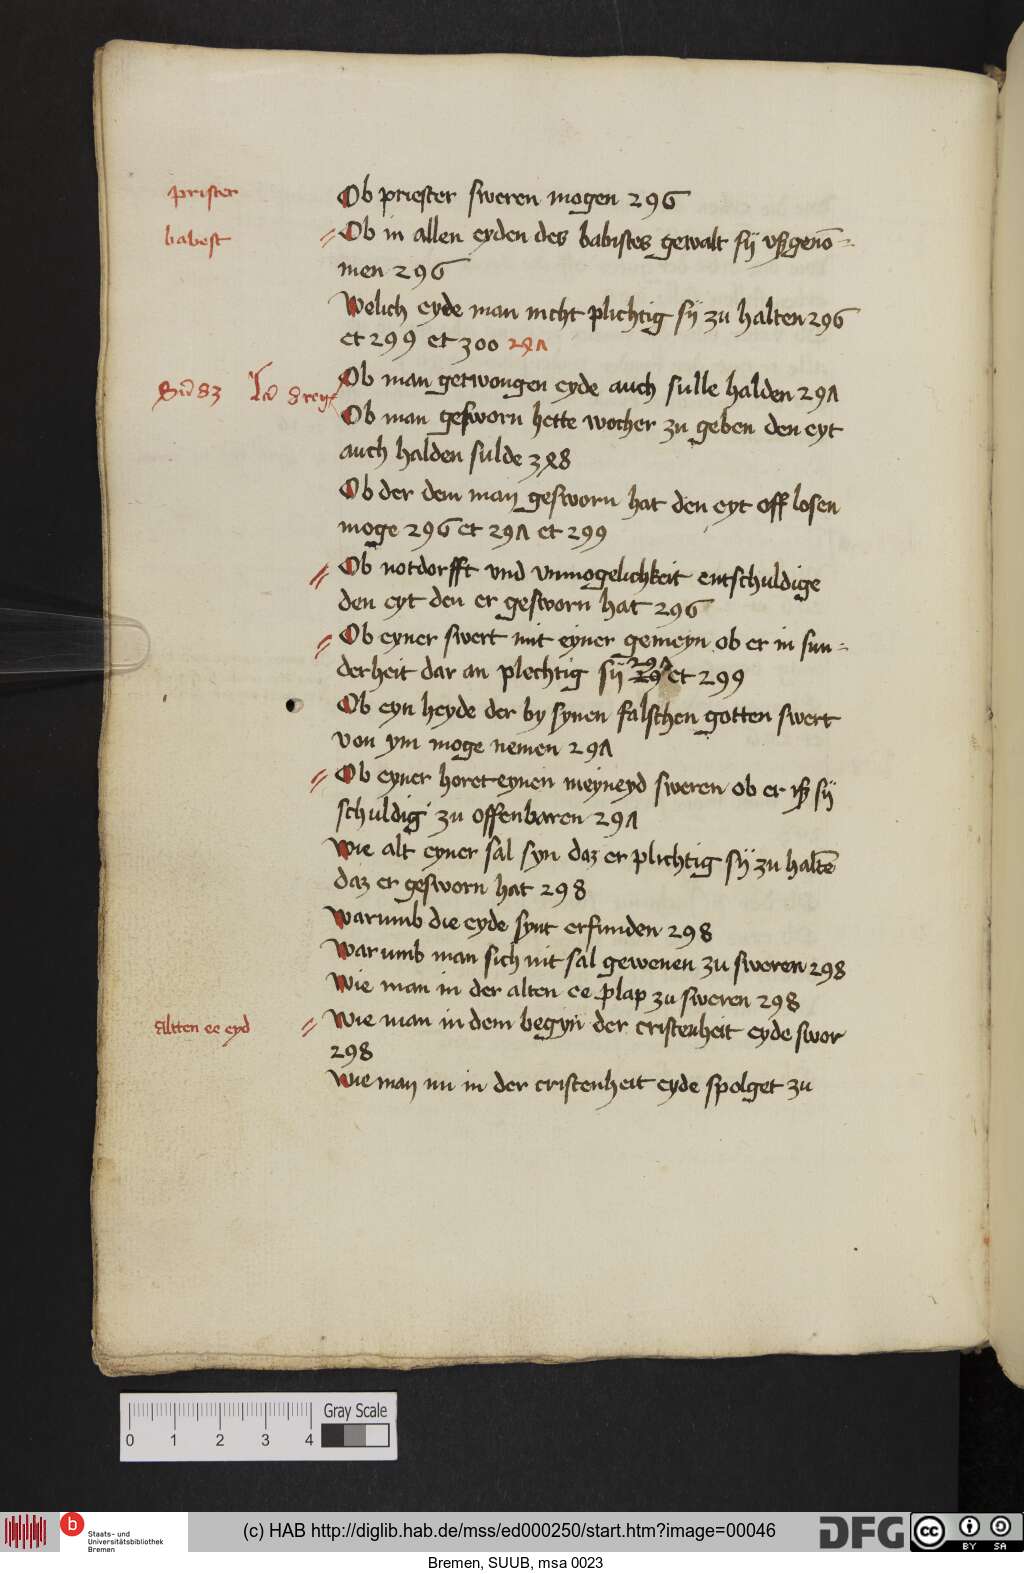 prister
Ob priester sweren mogen 296
babest
Ob in allen eyden des babistes gewalt sij vßgenō=
men 296
Welich eyde man nicht plichtig sij zu halten 296
et 299 et 300 297
Ob man getwongen eyde auch sulle halden 297
Ob man gesworn hette wocher zu geben den eyt
auch halden sulde 348
Ob der dem man gesworn hat den eyt off losen
moge 296 et 297 et 299
Ob notdorfft vnd vnmogelichkeit entschuldige
den eyt den er gesworn hat 296
Ob eyner swert mit eyner gemeyn ob er in sun=
derheit dar an plechtig sij 297 et 299
Ob eyn heyde der by synen falschen gotten swert
von ym moge nemen 297
Ob eyner horet eynen meyneyd sweren ob er iß sij
schuldig zu offenbaren 297
Wie alt eyner sal syn daz er plichtig sij zu haltē
daz er gesworn hat 298
Warumb die eyde synt erfunden 298
Warumb man sich nit sal gewenen zu sweren 298
Wie man in der alten ee plap zu sweren 298
Altten ee eyd
Wie man in dem begyn der cristenheit eyde swor
298
Wie man nu in der cristenheit eyde spolget zu
0 1 2 3 4
Gray Scale
b
Staats- und
Universitätsbibliothek
Bremen
(c) HAB http://diglib.hab.de/mss/ed000250/start.htm?image=00046
DFG
cc
BY SA
Bremen, SUUB, msa 0023